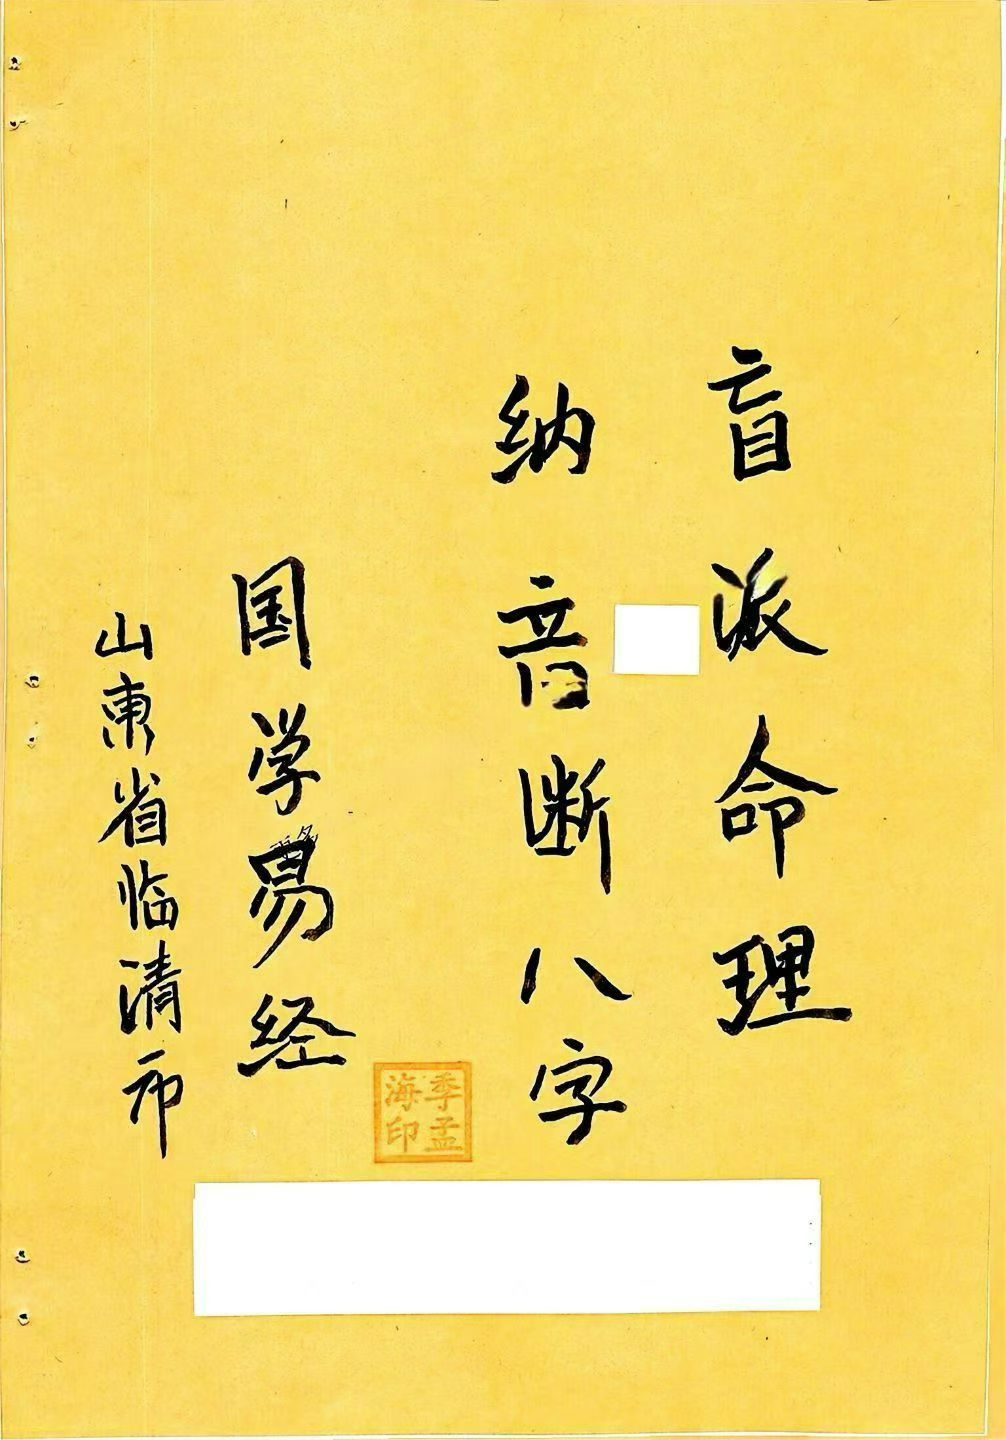 盲派命理
纳音断八字
国学易经
山东省临清市
季孟
海印